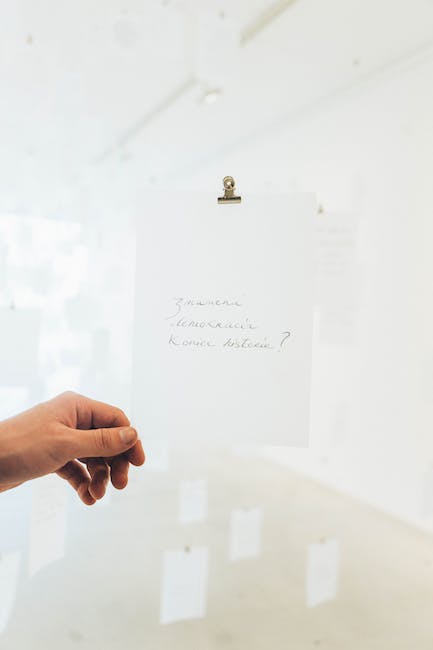 Znamená
demokracia
koniec histórie?